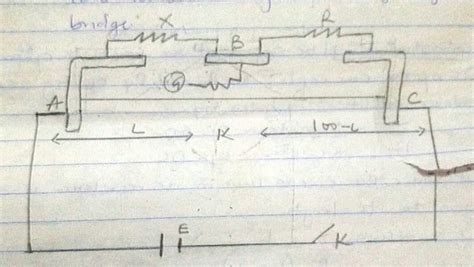 bridge.
X B R
G
A C
L K 100-L
E
K